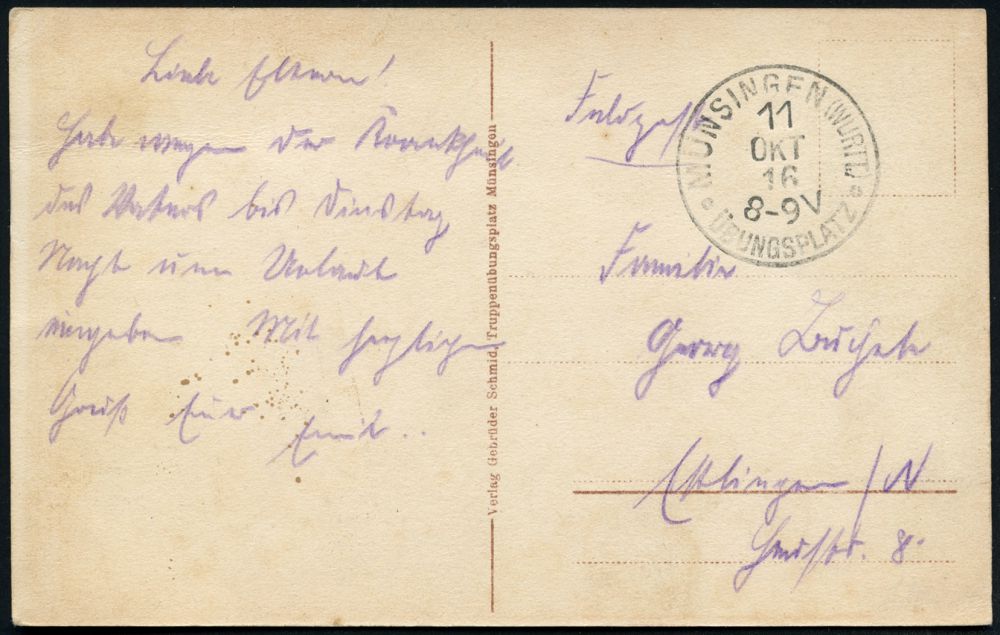 Liebe Eltern!
Habe wegen der Krankheit
des Vaters bis Dinstag
Nacht um Urlaub
eingeben Mit herzlichen
Gruß Euer
Emil..
Verlag Gebrüder Schmid, Truppenübungsplatz Münsingen
Feldpost
MÜNSINGEN (WÜRTT.)
11
OKT
16
8-9V
ÜBUNGSPLATZ
Familie
Georg
Eßlingen / N
8.